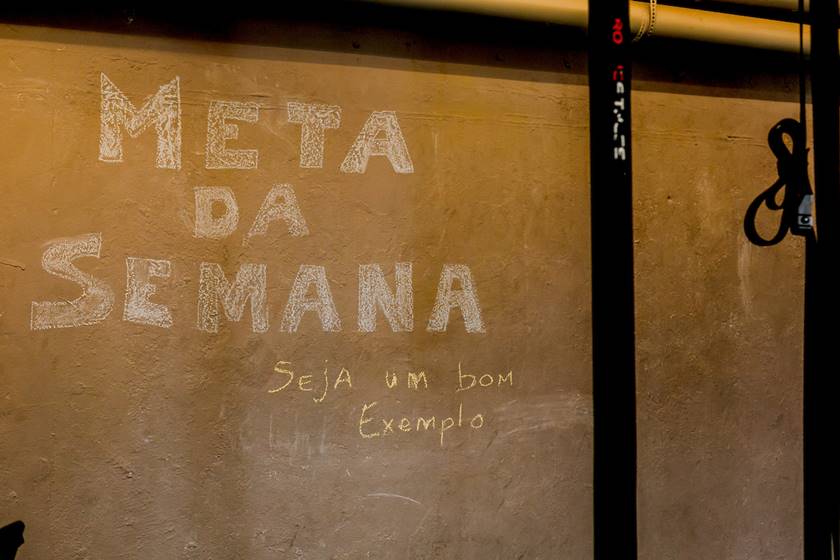 Meta
da
Semana
Seja um bom
Exemplo